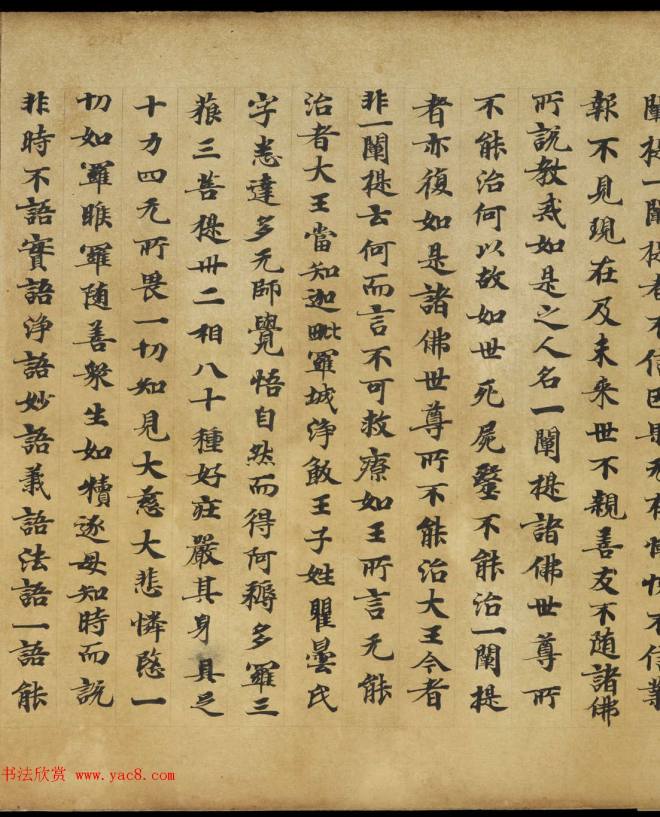 闡提一闡提者不信因果无有慚愧不信業
報不見現在及未来世不親善友不随諸佛
所說教戒如是之人名一闡提諸佛世尊所
不能治何以故如世死屍毉不能治一闡提
者亦復如是諸佛世尊所不能治大王今者
非一闡提云何而言不可救療如王所言无能
治者大王當知迦毗羅城淨飯王子姓瞿曇氏
字悉達多无師覺悟自然而得阿耨多羅三
藐三菩提卅二相八十種好莊嚴其身具足
十力四无所畏一切知見大慈大悲憐愍一
切如羅睺羅随善衆生如犢逐母知時而說
非時不語實語淨語妙語義語法語一語能
书法欣赏 www.yac8.com